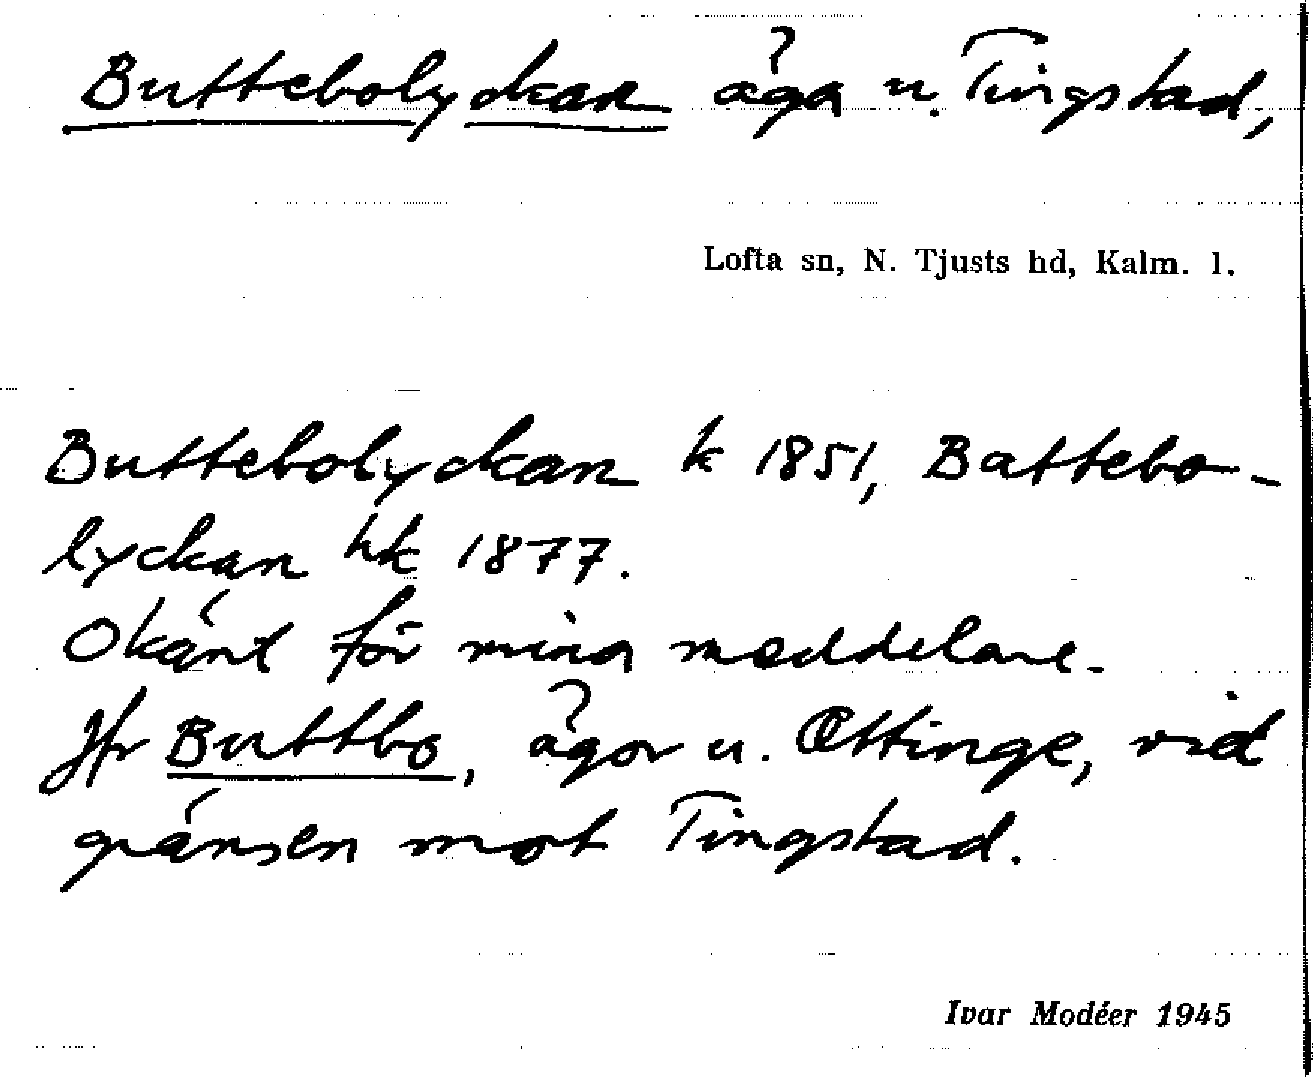 Buttebolyckan åga u. Tingstad,
Lofta sn, N. Tjusts hd, Kalm. l.
Buttebolyckan k 1851, Battebo-
lyckan hk 1877.
Okänt för mina meddelare.
Jfr Buttbo, ågor u. Ottinge, vid
gränsen mot Tingstad.
Ivar Modéer 1945